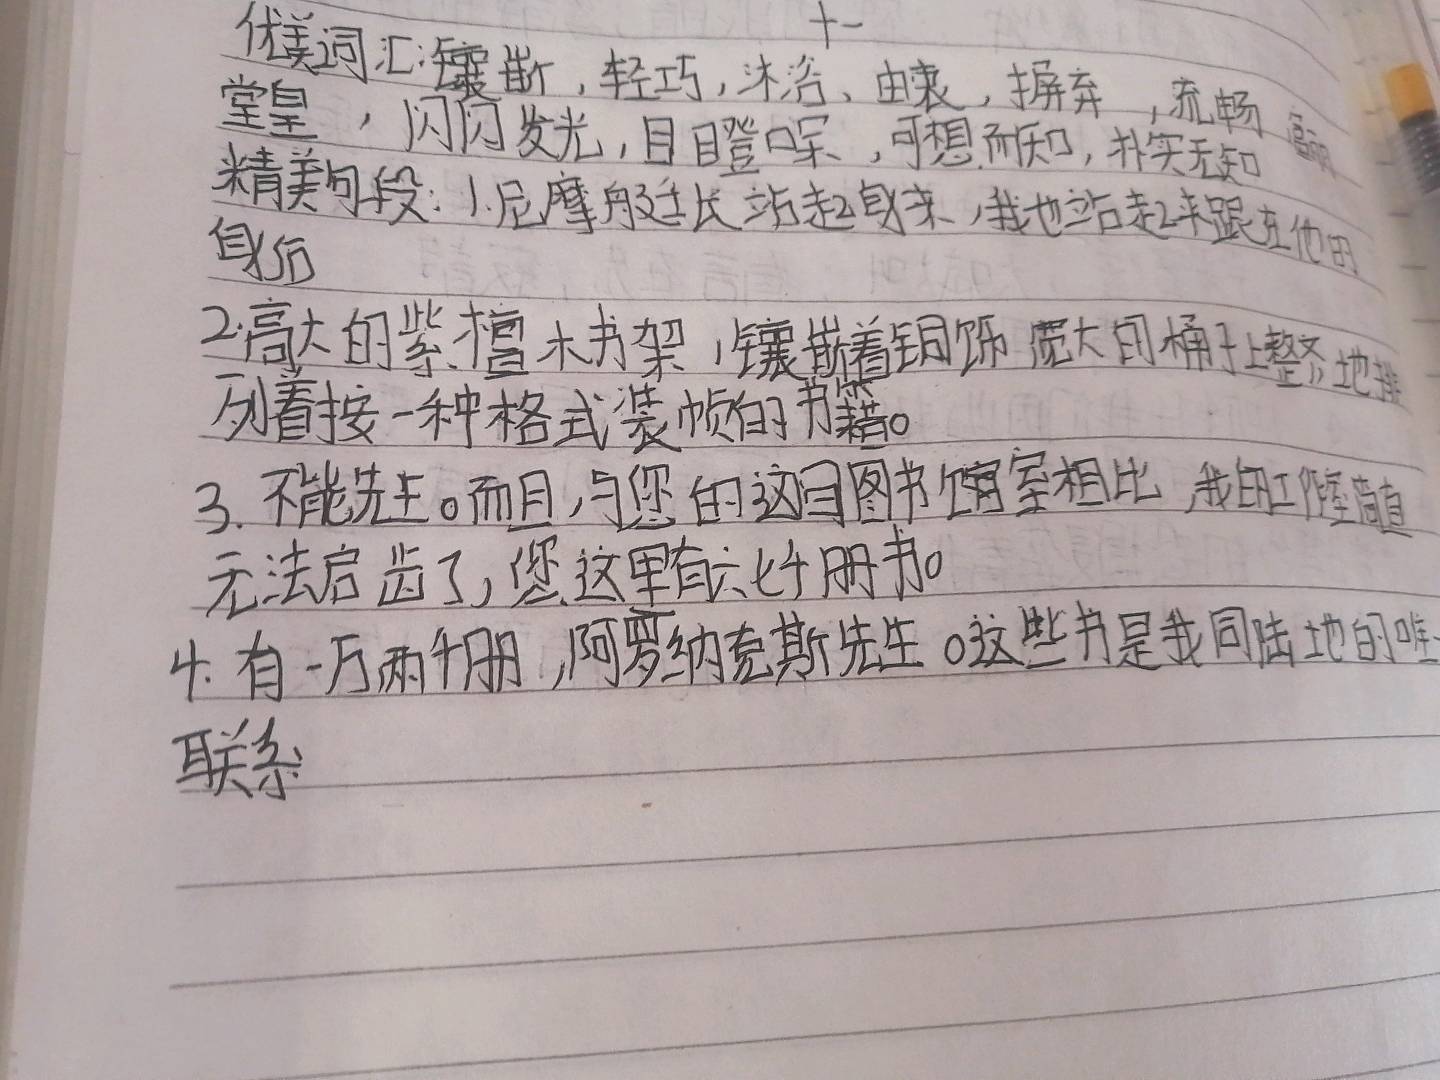 十一
优美词汇:镶嵌,轻巧,沐浴、由衷,摒弃,流畅
堂皇,闪闪发光,目瞪口呆,可想而知,朴实无知
精美句段:1.尼摩艇长站起身来,我也站起来跟在他的
身后
2.高大的紫檀木书架,镶嵌着铜饰宽大的桶子上整齐地排
列着按一种格式装帧的书籍。
3.不能先生。而且,与您的这间图书馆室相比,我的工作室简直
无法启齿了,您这里有六七千册书。
4.有一万两千册,阿罗纳克斯先生。这些书是我同陆地的唯一
联系